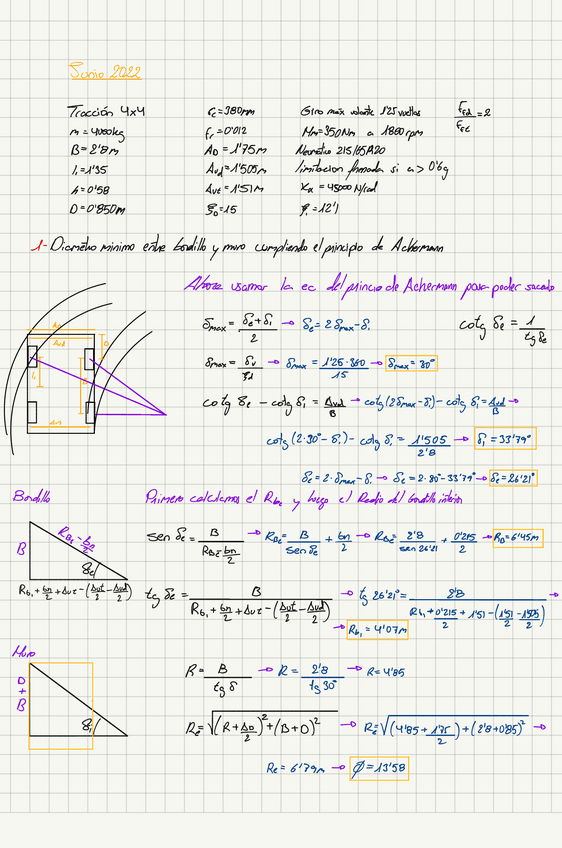 Junio 2022
Tracción 4x4
m = 4000kg
B = 2'8m
l₁ = 1'35
h = 0'58
D = 0'850m
rc = 380mm
fr = 0'012
AD = 1'75m
Avd = 1'505m
Avt = 1'51m
ξD = 15
Giro max volante 1'25 vueltas
Mm = 350Nm a 1800rpm
Neumático 215/65R20
limitacion frenada si a > 0'6g
Kα = 45000 N/rad
FFd/FFt = 2
1- Diametro minimo entre bordillo y muro cumpliendo el principio de Ackermann
Ahora usamos la ec del princio de Ackermann para poder sacarlo
δmax = (δe + δi)/2 → δe = 2δmax - δi
cotg δe = 1/tg δe
δmax = δv/ξd → δmax = 1'25·360/15 → δmax = 30°
cotg δe - cotg δi = Avd/B → cotg(2δmax - δi) - cotg δi = Avd/B →
cotg(2·30° - δi) - cotg δi = 1'505/2'8 → δi = 33'79°
δe = 2·δmax - δi → δe = 2·30 - 33'79 → δe = 26'21°
Bordillo
Primero calculamos el Rbe y luego el Radio del bordillo interior
sen δe = B/(Rbe - bn/2) → Rbe = B/sen δe + bn/2 → Rbe = 2'8/sen 26'21 + 0'215/2 → RB = 6'45m
B
δe
tg δe = B/(Rbi + bn/2 + Avt - (Avt/2 - Avd/2)) → tg 26'21° = 2'8/(Rbi + 0'215/2 + 1'51 - (1'51/2 - 1'505/2)) →
Rbi + bn/2 + Avt - (Avt/2 - Avd/2)
→ Rbi = 4'07m
Muro
D + B
R = B/tg δ → R = 2'8/tg 30° → R = 4'85
Re = √((R + AD/2)² + (B + D)²) → Re = √((4'85 + 1'75/2)² + (2'8 + 0'85)²) →
Re = 6'79m → Ø = 13'58